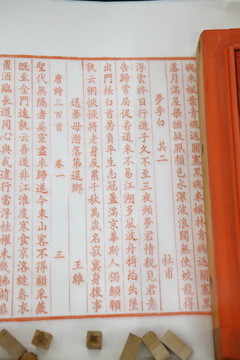 魂來楓葉青魂返關塞黑魂來楓葉青魂返關塞黑
落月滿屋梁猶疑照顏色水深波浪闊無使蛟龍得
夢李白 其二 杜甫
浮雲終日行遊子久不至三夜頻夢君情親見君意
告歸常局促苦道來不易江湖多風波舟楫恐失墜
出門搔白首若負平生志冠蓋滿京華斯人獨顦顇
孰云網恢恢將老身反累千秋萬歲名寂寞身後事
送綦毋潛落第還鄉 王維
唐詩三百首 卷一 三
聖代無隱者英靈盡來歸遂令東山客不得顧采薇
既至金門遠孰云吾道非江淮度寒食京洛縫春衣
置酒臨長道同心與我違行當浮桂櫂未幾拂荊扉